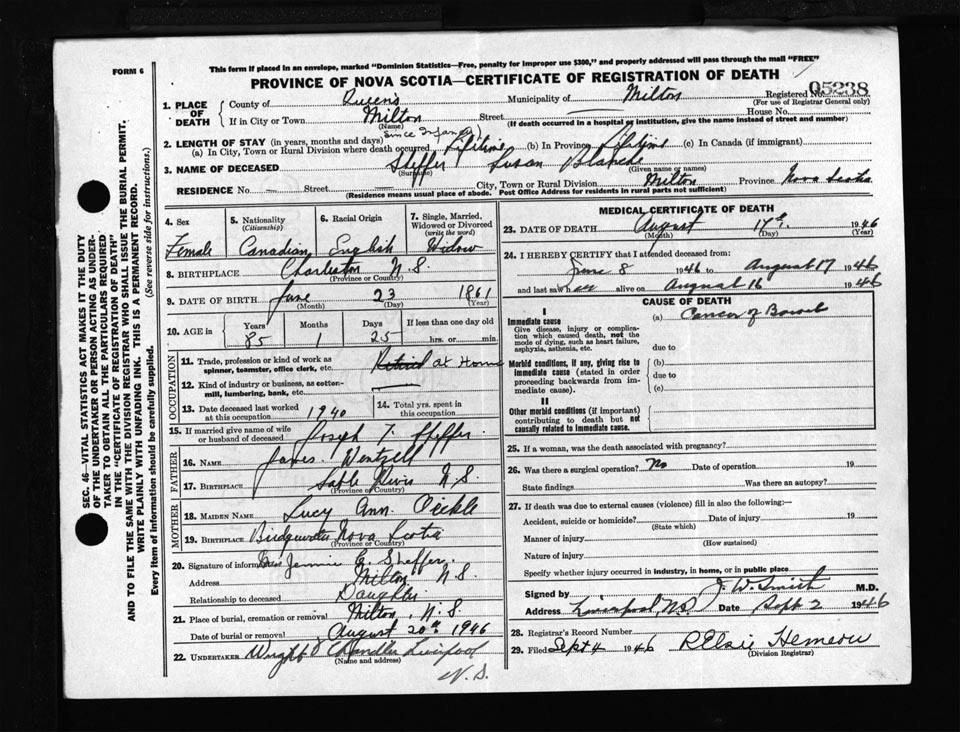 FORM 6
This form if placed in an envelope, marked "Dominion Statistics—Free, penalty for improper use $300," and properly addressed will pass through the mail "FREE"
PROVINCE OF NOVA SCOTIA—CERTIFICATE OF REGISTRATION OF DEATH
Registered No. 05238
(For use of Registrar General only)
1. PLACE OF DEATH County of Queens Municipality of Milton
If in City or Town Milton Street House No.
(Name) (If death occurred in a hospital or institution, give the name instead of street and number)
2. LENGTH OF STAY (in years, months and days) since Infancy
(a) In City, Town or Rural Division where death occurred Lifetime (b) In Province Lifetime (c) In Canada (if immigrant)
3. NAME OF DECEASED Sheffer Susan Blanche
(Surname) (Given name or names)
RESIDENCE No. — Street — City, Town or Rural Division Milton Province Nova Scotia
(Residence means usual place of abode. Post Office Address for residents in rural parts not sufficient)
4. Sex Female
5. Nationality (Citizenship) Canadian
6. Racial Origin English
7. Single, Married, Widowed or Divorced (write the word) Widow
8. BIRTHPLACE Charleston N.S.
(Province or Country)
9. DATE OF BIRTH June 23 1861
(Month) (Day) (Year)
10. AGE in Years Months Days If less than one day old
85 1 25 hrs. or min.
OCCUPATION
11. Trade, profession or kind of work as spinner, teamster, office clerk, etc. Retired at Home
12. Kind of industry or business, as cotton-mill, lumbering, bank, etc. —
13. Date deceased last worked at this occupation 1940
14. Total yrs. spent in this occupation
15. If married give name of wife or husband of deceased Joseph T. Sheffer
FATHER
16. NAME James Wentzell
17. BIRTHPLACE Sable River N.S.
(Province or Country)
MOTHER
18. MAIDEN NAME Lucy Ann
19. BIRTHPLACE Bridgewater Nova Scotia
(Province or Country)
20. Signature of informant Mrs Jennie E. Sheffer
Address Milton N.S.
Relationship to deceased Daughter
21. Place of burial, cremation or removal Milton, N.S.
Date of burial or removal August 20th 1946
22. UNDERTAKER Wright & Chandler Liverpool
(Name and address)
N.S.
MEDICAL CERTIFICATE OF DEATH
23. DATE OF DEATH August 17th. 1946
(Month) (Day) (Year)
24. I HEREBY CERTIFY that I attended deceased from:
June 8 1946 to August 17 1946
and last saw her alive on August 16 1946
CAUSE OF DEATH
I
Immediate cause (a) Cancer of Bowel
Give disease, injury or complication which caused death, not the mode of dying, such as heart failure, asphyxia, asthenia, etc.
due to
Morbid conditions, if any, giving rise to immediate cause (stated in order proceeding backwards from immediate cause).
(b)
due to
(c)
II
Other morbid conditions (if important) contributing to death but not causally related to immediate cause.
25. If a woman, was the death associated with pregnancy?
26. Was there a surgical operation? No Date of operation 19
State findings Was there an autopsy?
27. If death was due to external causes (violence) fill in also the following:—
Accident, suicide or homicide? Date of injury 19
(State which)
Manner of injury
(How sustained)
Nature of injury
Specify whether injury occurred in industry, in home, or in public place
Signed by J. W. Smith M.D.
Address Liverpool NS Date Sept 2 1946
28. Registrar's Record Number
29. Filed Sept 4 1946 R Elsie Hemeon
(Division Registrar)
SEC. 46—VITAL STATISTICS ACT MAKES IT THE DUTY
OF THE UNDERTAKER OR PERSON ACTING AS UNDERTAKER
TO OBTAIN ALL THE PARTICULARS REQUIRED
IN THE "CERTIFICATE OF REGISTRATION OF DEATH"
AND TO FILE THE SAME WITH THE DIVISION REGISTRAR WHO SHALL ISSUE THE BURIAL PERMIT.
WRITE PLAINLY WITH UNFADING INK. THIS IS A PERMANENT RECORD.
Every item of information should be carefully supplied. (See reverse side for instructions.)